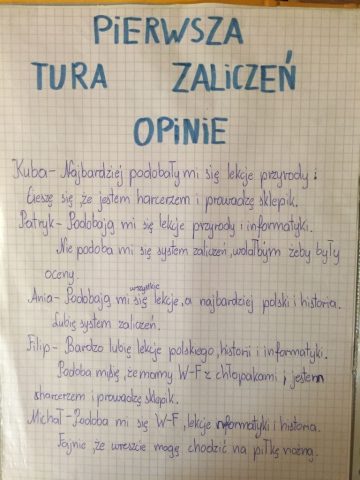 PIERWSZA
TURA ZALICZEŃ
OPINIE
Kuba - Najbardziej podobały mi się lekcje przyrody i
Cieszę się, że jestem harcerzem i prowadzę sklepik.
Patryk - Podobają mi się lekcje przyrody i informatyki.
Nie podoba mi się system zaliczeń, wolałbym żeby były
oceny.
wszystkie
Ania - Podobają mi się lekcje, a najbardziej polski i historia.
Lubię system zaliczeń.
Filip - Bardzo lubię lekcje polskiego, historii i informatyki.
Podoba mi się, że mamy W-F z chłopakami, jestem
harcerzem i prowadzę sklepik.
Michał - Podoba mi się W-F, lekcje informatyki i historia.
Fajnie, że wreszcie mogę chodzić na piłkę nożną.